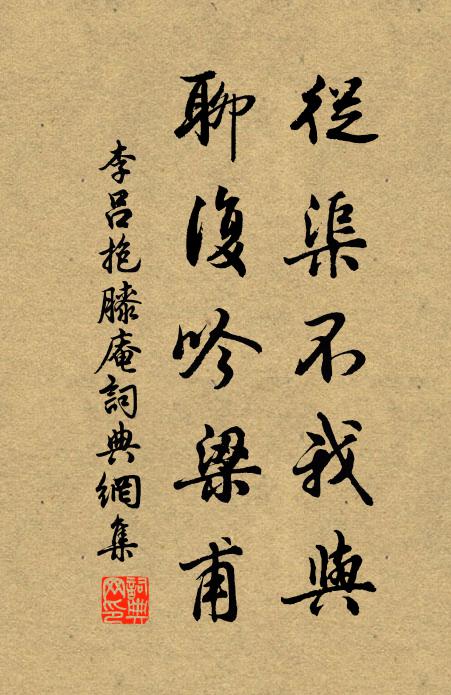 從渠不我與
聊復吟梁甫
李呂抱膝庵詞典網集
詞典網印